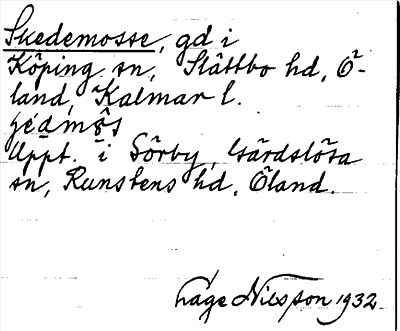 Skedemosse, gd i
Köping sn, Slättbo hd, Ö-
land, Kalmar l.
Uppt. i Sörby, Gärdslösa
sn, Runstens hd, Öland.
Lage Nilsson 1932